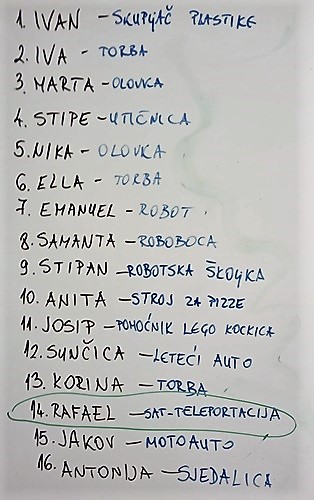 1. IVAN - SKUPLJAČ PLASTIKE
2. IVA - TORBA
3. MARTA - OLOVKA
4. STIPE - UTIČNICA
5. NIKA - OLOVKA
6. ELLA - TORBA
7. EMANUEL - ROBOT
8. SAMANTA - ROBOBOCA
9. STIPAN - ROBOTSKA ŠKOLJKA
10. ANITA - STROJ ZA PIZZE
11. JOSIP - POMOĆNIK LEGO KOCKICA
12. SUNČICA - LETEĆI AUTO
13. KORINA - TORBA
14. RAFAEL - SAT-TELEPORTACIJA
15. JAKOV - MOTOAUTO
16. ANTONIJA - SJEDALICA